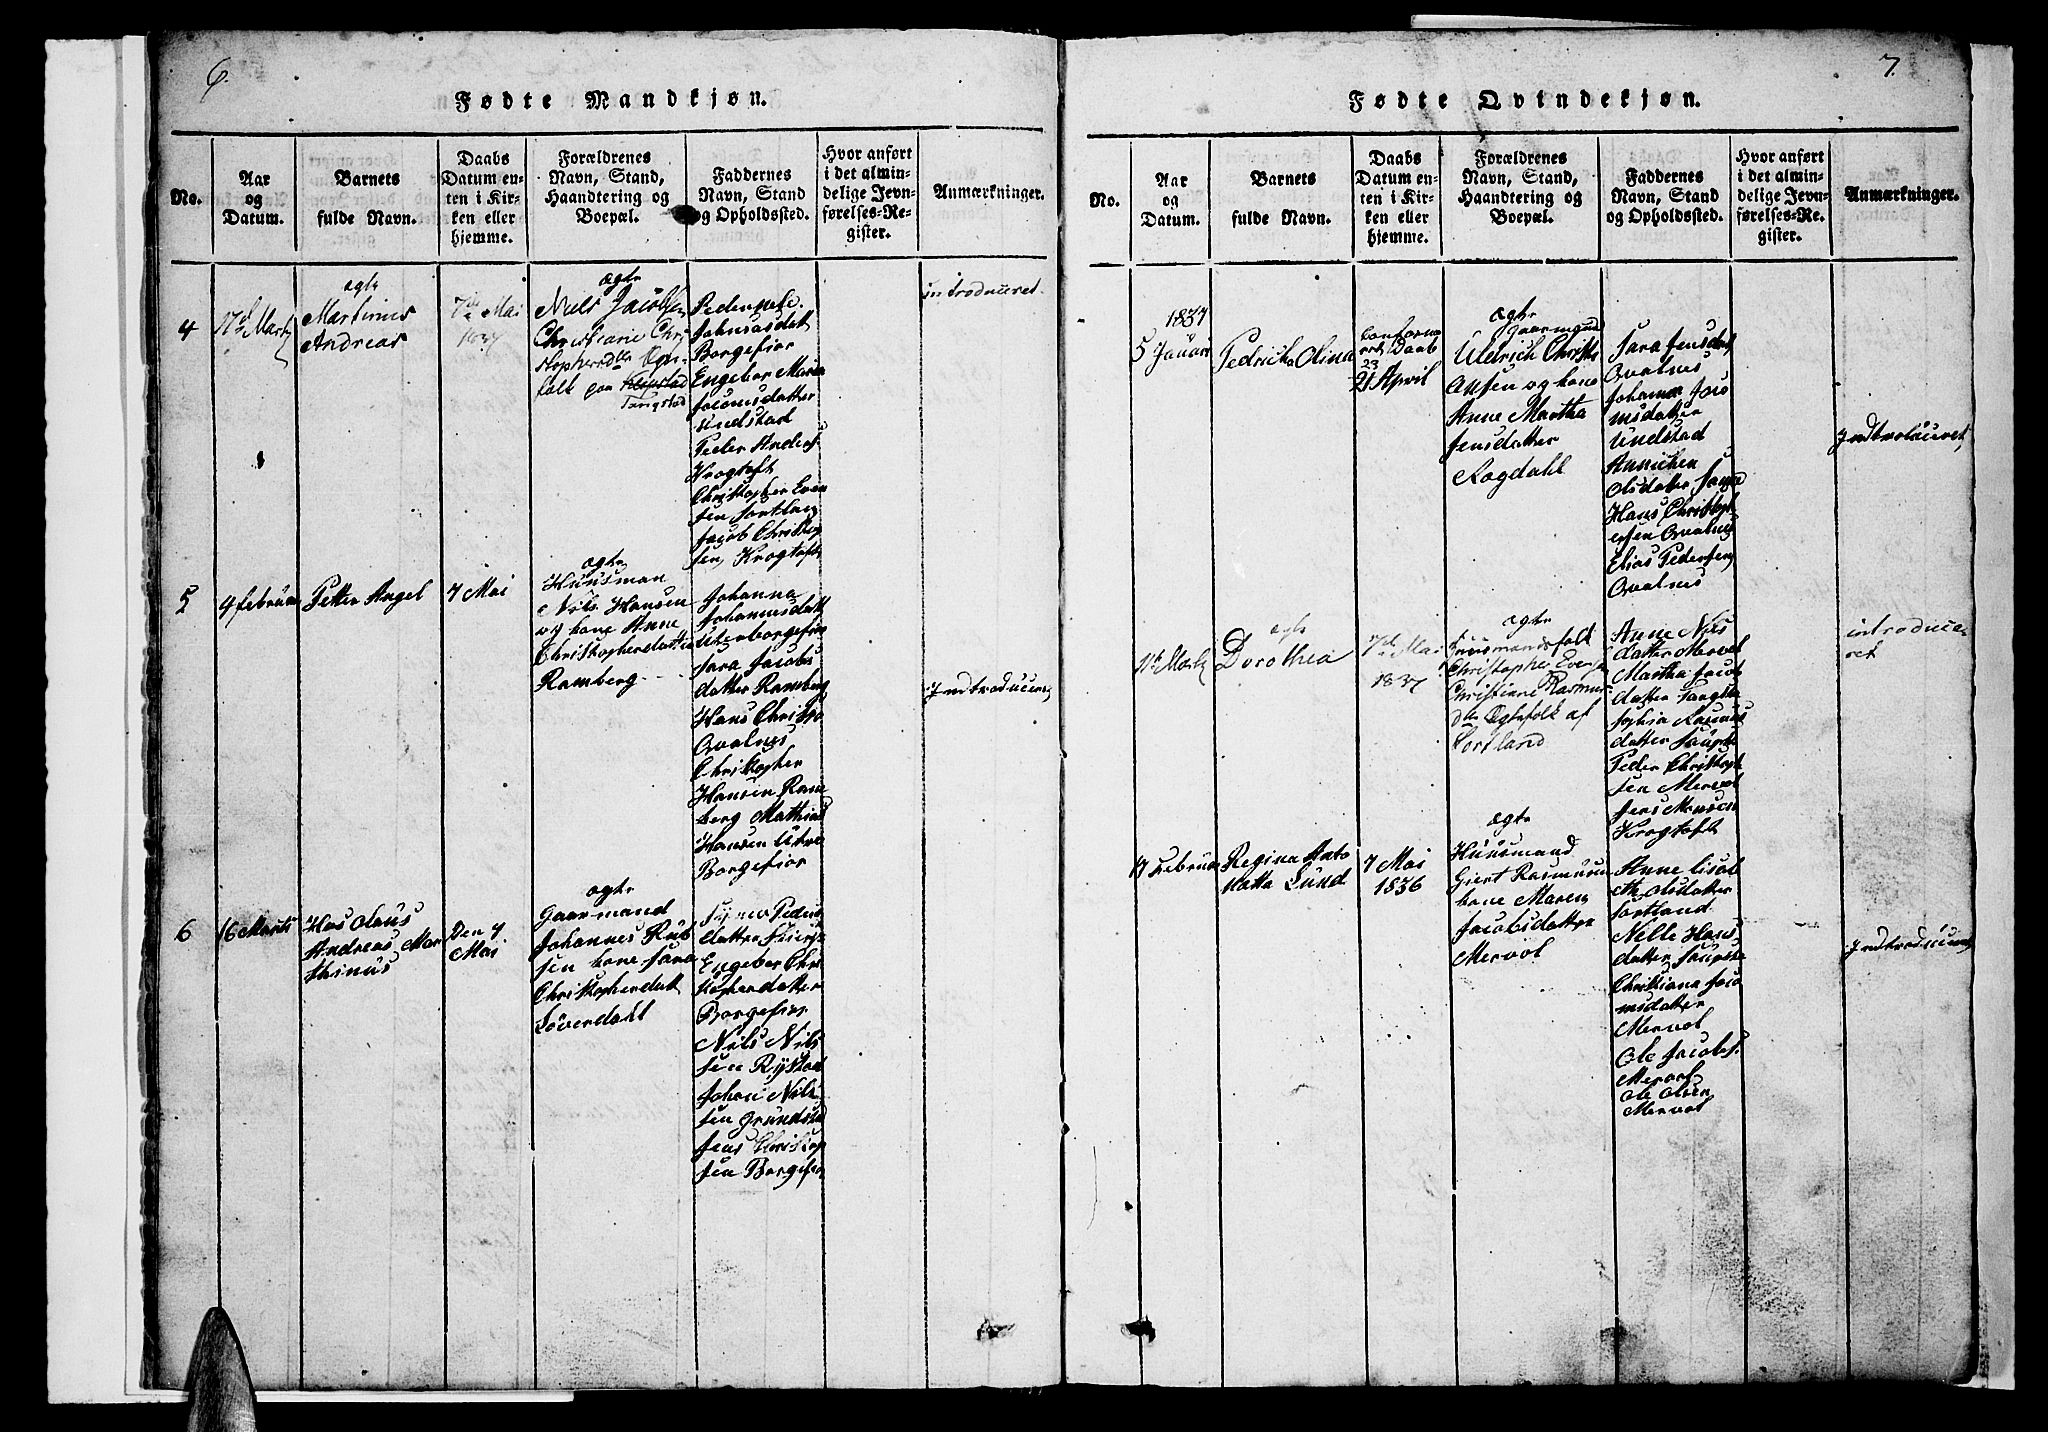 6.
Fødte Mandkjøn.
No.
Aar
og
Datum.
Barnets
fulde Navn.
Daabs
Datum en-
ten i Kir-
ken eller
hjemme.
Forældrenes
Navn, Stand,
Haandtering og
Boepæl.
Faddernes
Navn, Stand
og Opholdssted.
Hvor anført
i det almin-
delige Jevn-
førelses-Re-
gister.
Anmærkninger.
4
17de Marty
ægte
Martinius
Andreas
7de Mai
1837
ægte
Niels Jacobsen
Christiane Chri
stophersdtr Ægte
folk paa
Tangstad
Peder
Johnasdatt
Borgefior
Engebor Maria
Jaconisdatter
Undstad
Peder Anders
Krogtoft
Christopher Even
sen Sortlan
Jacob Christop
sen Krogtoft
introduceret
5
4 februar
Petter Angel
7 Mai
ægte
Huusman
Nils Hansen
og kone Anne
Christopherdatter
Ramberg
Johanna
Johannisdatt
Uttenborgefior
Sara Jacobs
datter Ramberg
Hans Christop
Qvalnes
Christopher
Hansen Ram
berg Mathias
Hansen Uttre
Borgefior
Indtroducere
6
16 Marti
Hans Olaus
Andreas Mar
thinus
Den 7
Mai
ægte
Gaarmand
Johannes Rub
sen kone Sara
Christopherdatt
Løverdahl
Peders
datter
Engebor Chri
stopherdatter
Borgefior
Nils Nils
sen Rystad
Johan Nils
sen Grundstad
Jens Christop
sen Borgefior
7.
Fødte Qvindekjøn.
No.
Aar
og
Datum.
Barnets
fulde Navn.
Daabs
Datum en-
ten i Kir-
ken eller
hjemme.
Forældrenes
Navn, Stand,
Haandtering og
Boepæl.
Faddernes
Navn, Stand
og Opholdssted.
Hvor anført
i det almin-
delige Jevn-
førelses-Re-
gister.
Anmærkninger.
1837
5 Januar
Pedricka Olina
Confirme
ret Daab
23
21 April
ægte
Gaarmand
Uldrich Christo
Olssen og kone
Anne Martha
Jensdatter
Ragdahl
Sara Jensdat
Qvalnes
Johanna Jaco
nisdatter
Undstad
Annichen
Olsdatter
Hans Christoph
ersen Qvalnes
Elias Pedersen
Qvalnes
Indtroduceret
11te Marty
ægte
Dorothea
7de Mai
1837
ægte
Huusmandsfolk
Christopher Evens
Christianne Rasmus
dtr Ægtefolk af
Sortland
Anne Nils
datter Mervol
Martha Jacob
datter Tangsta
Sophia Rasmus
datter
Peder Christoph
sen Mervol
Jens Monsen
Krogtoft
introduce
ret
17 Februar
Regina Anto
natta Lund
7 Mai
1836
ægte
Huusmand
Giert Rasmusen
kone Maren
Jacobsdatter
Mervol
Anne Lisab
eth Olsdatter
Sortland
Nelle Hans
datter
Christiana Jaco
nisdatter
Mervol
Ole Jacobs.
Mervol
Ole Olsen
Mervol
Indtroducere